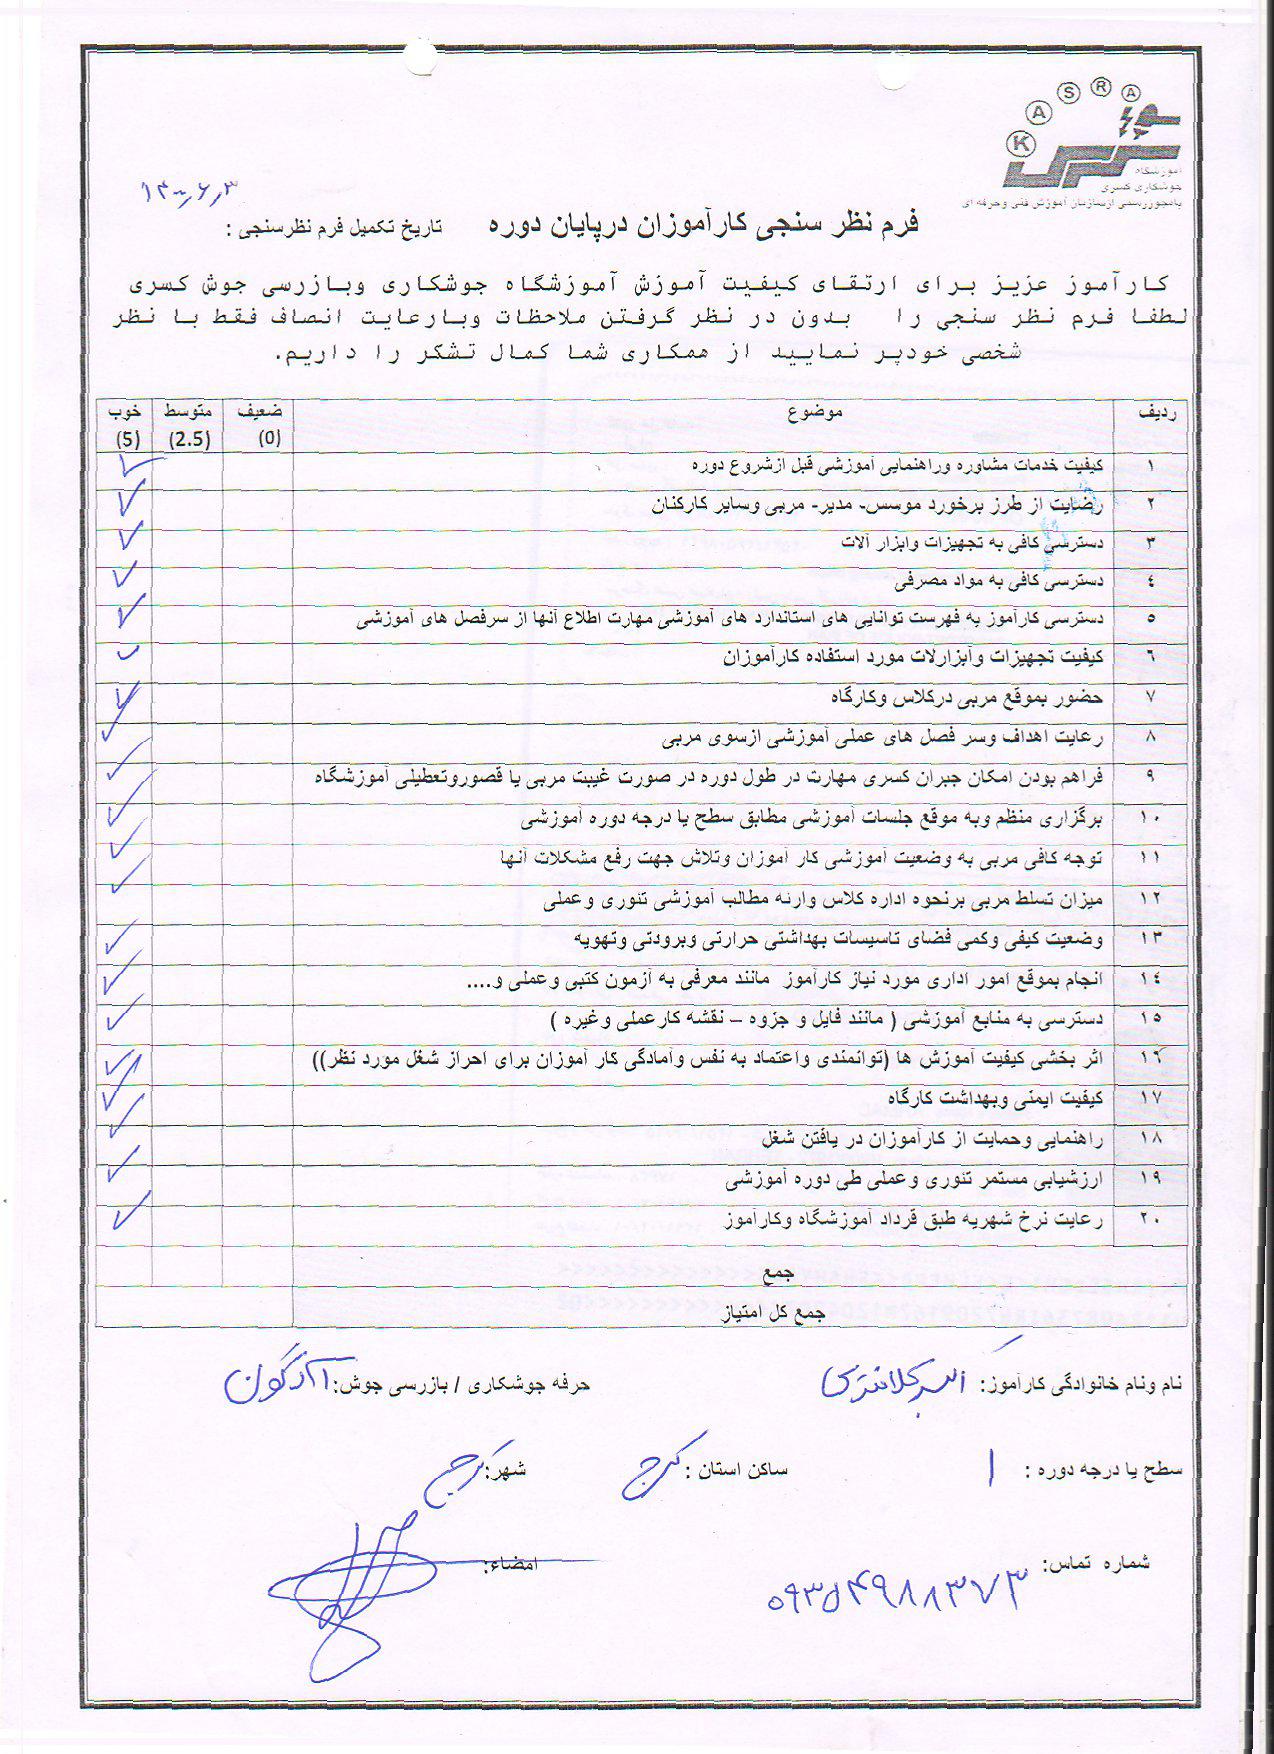 K A S R A
آموزشگاه
جوشکاری کسری
بامجوزرسمی ازسازمان آموزش فنی وحرفه ای
۱۴۰۰٫۶٫۳
فرم نظر سنجی کارآموزان درپایان دوره تاریخ تکمیل فرم نظرسنجی :
کارآموز عزیز برای ارتقای کیفیت آموزش آموزشگاه جوشکاری وبازرسی جوش کسری
لطفا فرم نظر سنجی را بدون در نظر گرفتن ملاحظات وبارعایت انصاف فقط با نظر
شخصی خودپر نمایید از همکاری شما کمال تشکر را داریم.
ردیف موضوع ضعیف (0) متوسط (2.5) خوب (5)
۱ کیفیت خدمات مشاوره وراهنمایی آموزشی قبل ازشروع دوره ✓
۲ رضایت از طرز برخورد موسس- مدیر- مربی وسایر کارکنان ✓
۳ دسترسی کافی به تجهیزات وابزار آلات ✓
٤ دسترسی کافی به مواد مصرفی ✓
٥ دسترسی کارآموز به فهرست توانایی های استاندارد های آموزشی مهارت اطلاع آنها از سرفصل های آموزشی ✓
٦ کیفیت تجهیزات وآبزارلات مورد استفاده کارآموزان ✓
۷ حضور بموقع مربی درکلاس وکارگاه ✓
۸ رعایت اهداف وسر فصل های عملی آموزشی ازسوی مربی ✓
۹ فراهم بودن امکان جبران کسری مهارت در طول دوره در صورت غیبت مربی یا قصوروتعطیلی آموزشگاه ✓
۱۰ برگزاری منظم وبه موقع جلسات آموزشی مطابق سطح یا درجه دوره آموزشی ✓
۱۱ توجه کافی مربی به وضعیت آموزشی کار آموزان وتلاش جهت رفع مشکلات آنها ✓
۱۲ میزان تسلط مربی برنحوه اداره کلاس وارئه مطالب آموزشی تئوری وعملی ✓
۱۳ وضعیت کیفی وکمی فضای تاسیسات بهداشتی حرارتی وبرودتی وتهویه ✓
۱٤ انجام بموقع امور اداری مورد نیاز کارآموز مانند معرفی به آزمون کتبی وعملی و.... ✓
۱٥ دسترسی به منابع آموزشی ( مانند فایل و جزوه – نقشه کارعملی وغیره ) ✓
۱٦ اثر بخشی کیفیت آموزش ها (توانمندی واعتماد به نفس وآمادگی کار آموزان برای احراز شغل مورد نظر)) ✓
۱۷ کیفیت ایمنی وبهداشت کارگاه ✓
۱۸ راهنمایی وحمایت از کارآموزان در یافتن شغل ✓
۱۹ ارزشیابی مستمر تئوری وعملی طی دوره آموزشی ✓
۲۰ رعایت نرخ شهریه طبق قرداد آموزشگاه وکارآموز ✓
جمع
جمع کل امتیاز
نام ونام خانوادگی کارآموز: اکبر کلانتری حرفه جوشکاری / بازرسی جوش: آرگون
سطح یا درجه دوره : ۱ ساکن استان : کرج شهر: کرج
شماره تماس: ۰۹۳۵۴۹۸۸۳۷۳ امضاء: